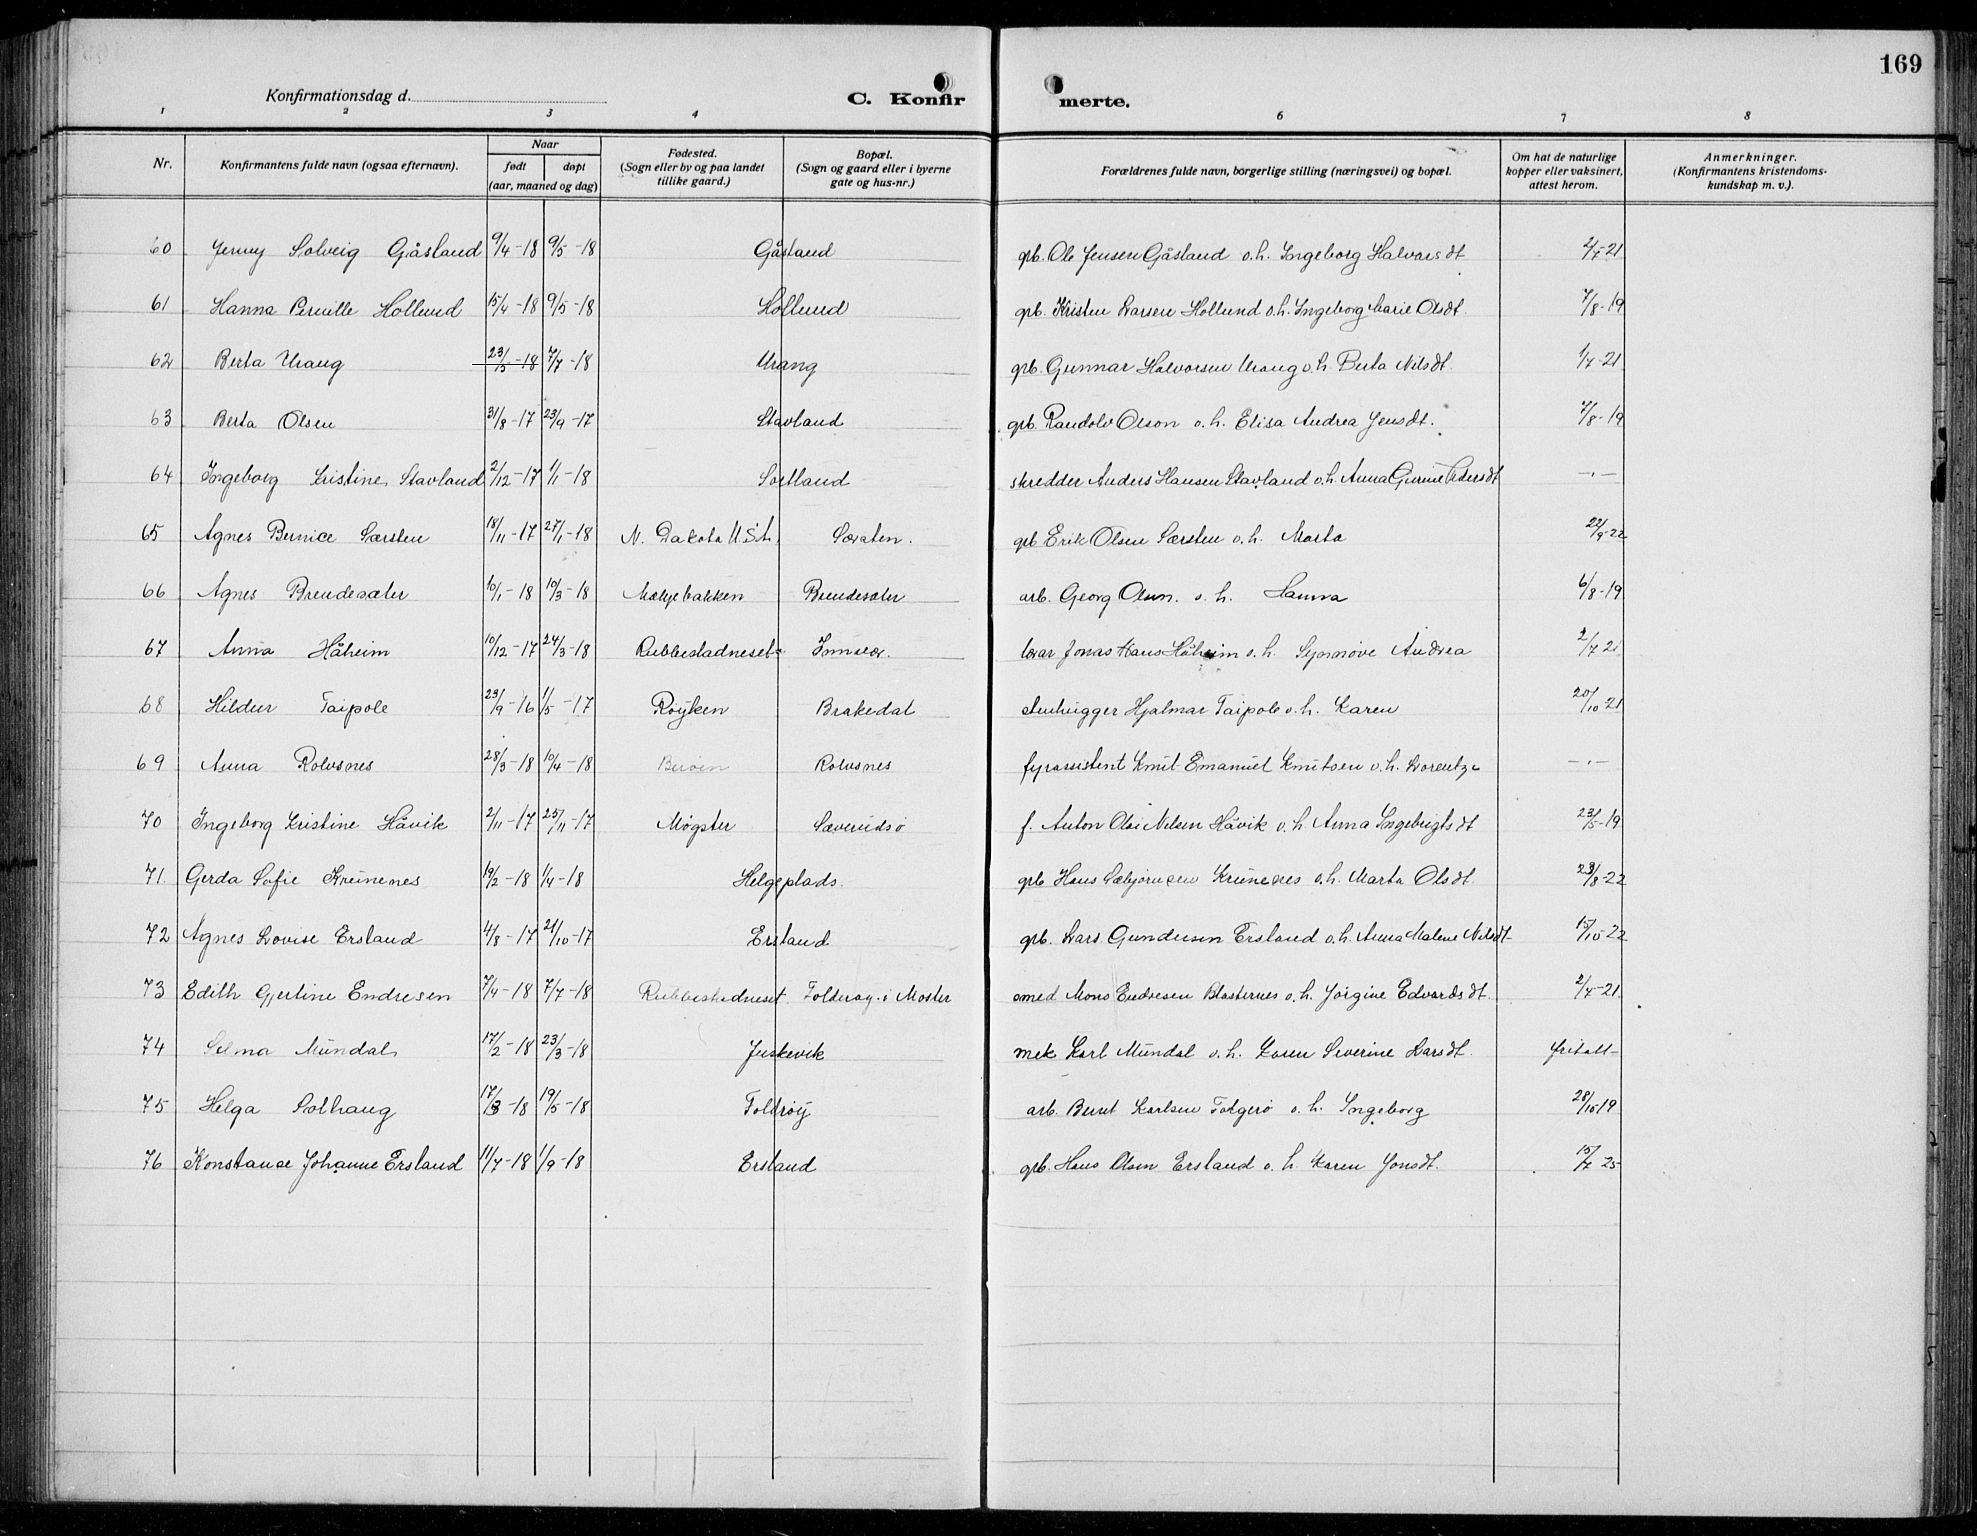 169
Konfirmationsdag d.
C. Konfirmerte.
1 2 3 4 6 7 8
Nr. Konfirmantens fulde navn (ogsaa efternavn). Naar født døpt (aar, maaned og dag) Fødested. (Sogn eller by og paa landet tillike gaard.) Bopæl. (Sogn og gaard eller i byerne gate og hus-nr.) Forældrenes fulde navn, borgerlige stilling (næringsvei) og bopæl. Om hat de naturlige kopper eller vaksinert, attest herom. Anmerkninger. (Konfirmantens kristendomskundskap m. v.).
60 Jenny Solveig Gåsland 9/4-18 9/5-18 Gåsland grb. Ole Jensen Gåsland o.h. Ingeborg Halvorsdt 21
61 Hanna Pernille Hollund 15/4-18 9/5-18 Hollund grb. Kristen Larsen Hollund o.h. Ingeborg Marie Olsdt. 7/8-19
62 Berta Urang 23/5-18 7/7-18 Urang grb. Gunnar Halvorsen Urang o.h. Berta Nilsdt. 21
63 Berta Olsen 31/8-17 23/9-17 Stavland grb. Randolv Olson o.h. Elisa Andrea Jensdt. 7/8-19
64 Ingeborg Kristine Stavland 2/12-17 1/1-18 Sortland skredder Anders Hansen Stavland o.h. Anna Gurine Pedersdt -"-
65 Agnes Bernice Sørsten 18/11-17 27/1-18 N. Dakota U.S.A. grb Erik Olsen Sørsten o.h. Marta 22/9-22
66 Agnes Brendesæter 10/1-18 10/3-18 Mækjebakken Brendesæter arb. Georg Olsen. o.h. Hanna 6/8-19
67 Anna Håheim 10/12-17 24/3-18 Rubbestadneset Innvær. Jonas Hans Håheim o.h. Synnøve Andrea 2/7 21
68 Hildur Taipole 23/9-16 1/5-17 Røyken Brakedal stenhugger Hjalmar Taipole o.h. Karen 20/10 21
69 Anna Rolvsnes 28/3-18 10/4-18 Rolvsnes fyrassistent Knut Emanuel Knutsen o.h. Lorentze -"-
70 Ingeborg Kristine Håvik 2/11-17 25/11-17 Møgster Sæverudsø f. Anton Olai Nilsen Håvik o.h. Anna Ingebrigtsdt 23/5-19
71 Gerda Sofie Kreunenes 19/2-18 1/4-18 Helgeplads. grb Hans Sæbjørnsen o.h. Marta Olsdt. 23/8-22
72 Agnes Lovise Ersland 4/8-17 21/10-17 Ersland grb. Lars Gundersen Ersland o.h. Anna Malene Nilsdt 15/10-22
73 Edith Gjertine Endresen 7/4-18 7/7-18 Rubbestadneset Folderøy i Moster smed Mons Endresen o.h. Jørgine Edvardsdt. 21
74 Selma Mundal 17/2-18 23/3-18 Juskevik mek Karl Mundal o.h. Severine Larsdt. fritatt-
75 Helga Solhaug 17/3-18 19/5-18 Foldrøy arb. Bernt Karlsen o.h. Ingeborg 28/10 19
76 Konstanse Johanne Ersland 11/7-18 1/9-18 Ersland grb. Hans Olsen Ersland o.h. Karen Jonsdt. 15/7 25